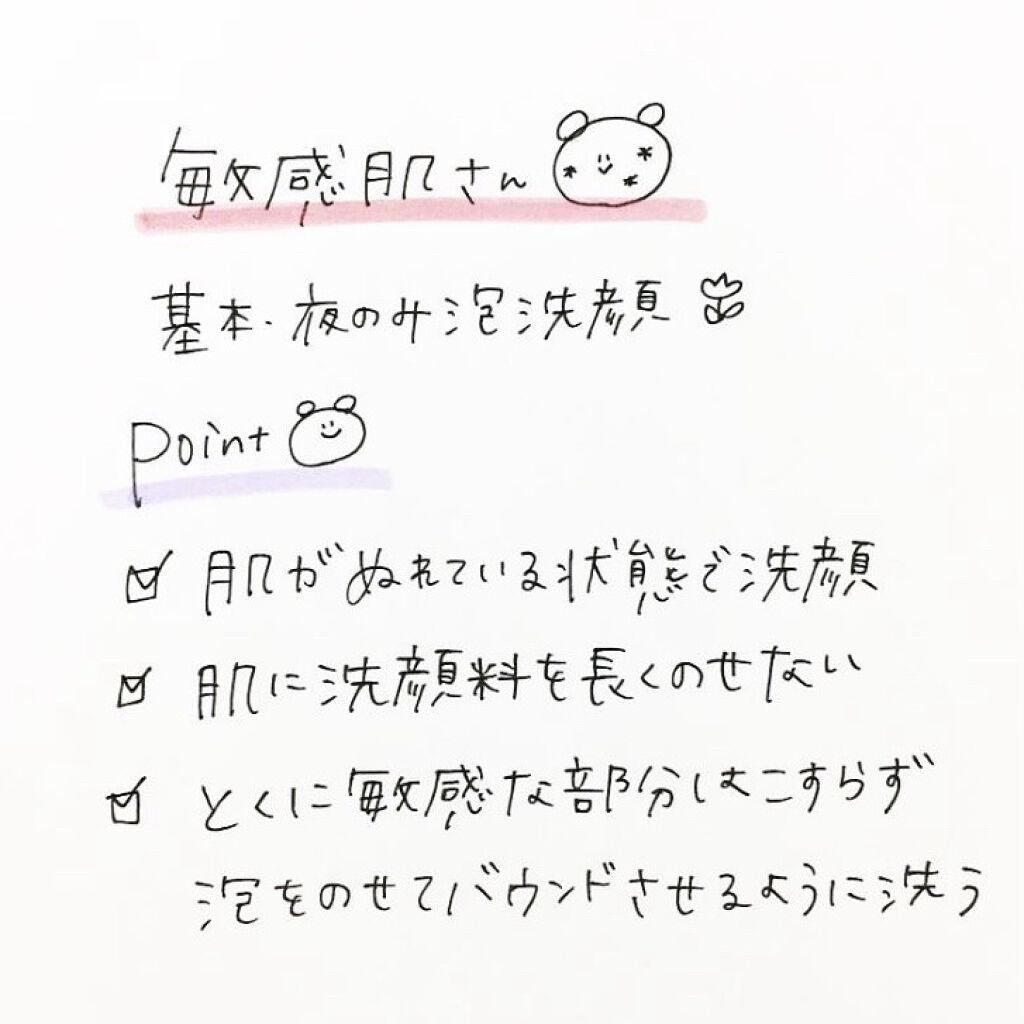 敏感肌さん
基本・夜のみ泡洗顔
Point
肌がぬれている状態で洗顔
肌に洗顔料を長くのせない
とくに敏感な部分はこすらず
泡をのせてバウンドさせるように洗う